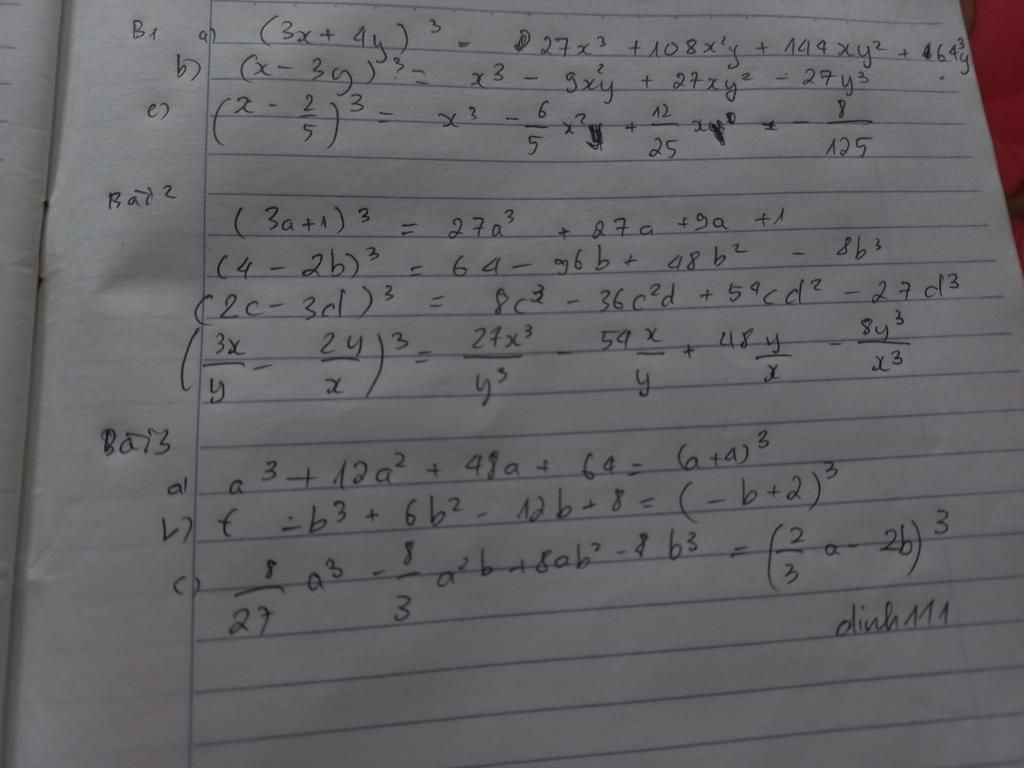 B1 a) (3x + 4y)³ = 27x³ + 108x²y + 144xy² + 64y³
b) (x - 3y)³ = x³ - 9x²y + 27xy² - 27y³
c) (x - 2/5)³ = x³ - 6/5 x² + 12/25 x - 8/125
Bài 2
(3a+1)³ = 27a³ + 27a + 9a + 1
(4 - 2b)³ = 64 - 96b + 48b² - 8b³
(2c - 3d)³ = 8c³ - 36c²d + 54cd² - 27d³
(3x/y - 2y/x)³ = 27x³/y³ - 54 x/y + 48 y/x - 8y³/x³
Bài 3
a) a³ + 12a² + 48a + 64 = (a+4)³
b) -b³ + 6b² - 12b + 8 = (-b+2)³
c) 8/27 a³ - 8/3 a²b + 8ab² - 8b³ = (2/3 a - 2b)³
dinh111